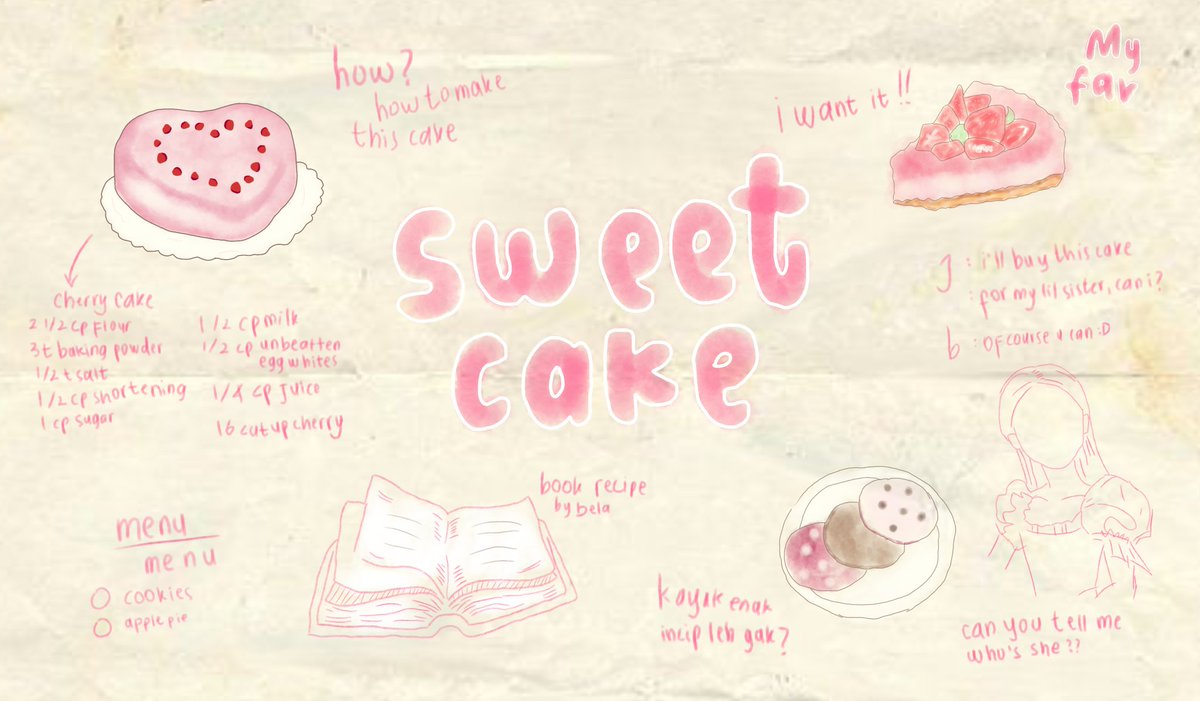 how?
how to make
this cake
i want it!!
My
fav
sweet
cake
cherry cake
2 1/2 cp flour
3t baking powder
1/2 t salt
1/2 cp shortening
1 cp sugar
1/2 cp milk
1/2 cp unbeatten
egg whites
1/4 cp juice
16 cut up cherry
J : i'll buy this cake
: for my lil sister, can i?
b : of course u can :D
book recipe
by bela
menu
menu
cookies
apple pie
kayak enak
incip leh gak?
can you tell me
who's she??